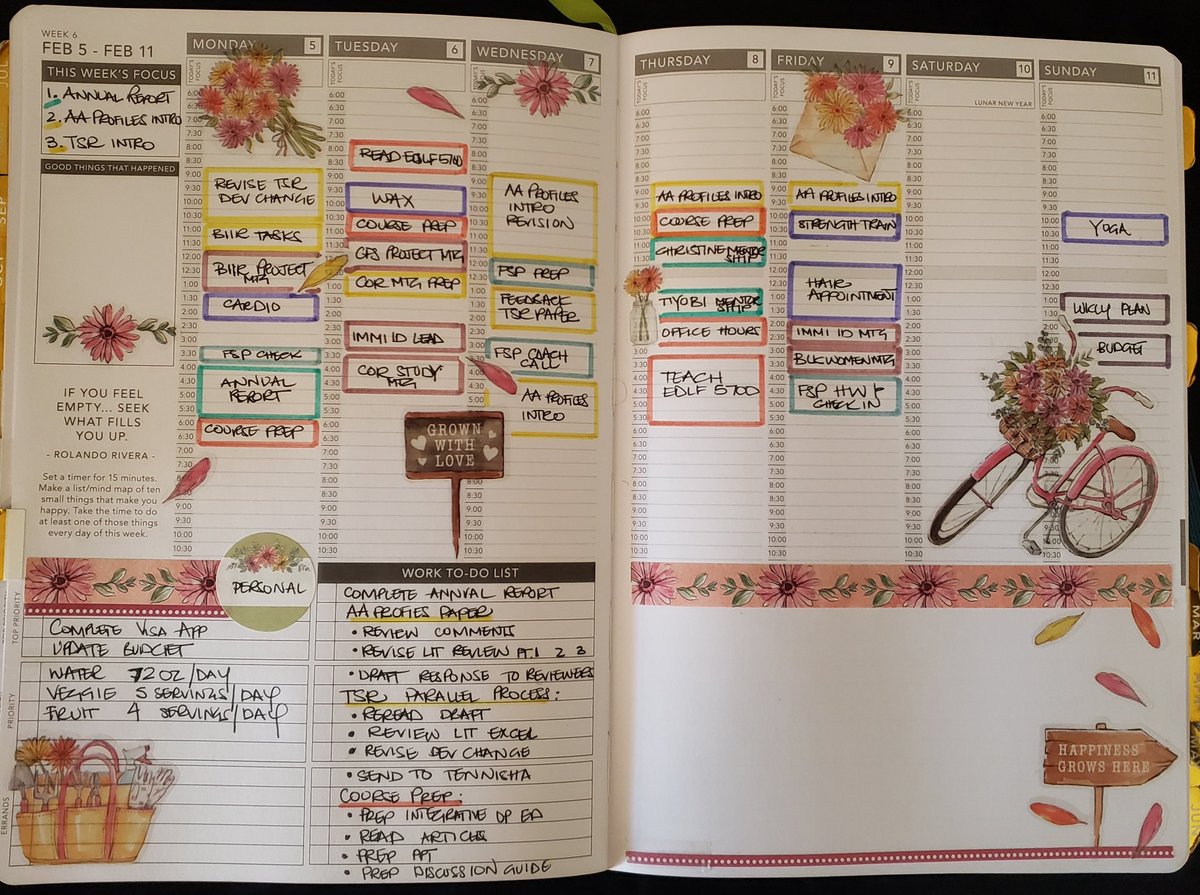 WEEK 6
FEB 5 - FEB 11
THIS WEEK'S FOCUS
1. ANNUAL REPORT
2. AA PROFILES INTRO
3. TSR INTRO
GOOD THINGS THAT HAPPENED
IF YOU FEEL
EMPTY... SEEK
WHAT FILLS
YOU UP.
- ROLANDO RIVERA -
Set a timer for 15 minutes.
Make a list/mind map of ten
small things that make you
happy. Take the time to do
at least one of those things
every day of this week.
MONDAY 5
TODAY'S FOCUS
REVISE TSR
DEV CHANGE
BIIR TASKS
BIIR PROJECT
MTG
CARDIO
FSP CHECK
ANNUAL
REPORT
COURSE PREP
TUESDAY 6
TODAY'S FOCUS
READ EDLF 5700
WAX
COURSE PREP
CFS PROJECT MTG
COR MTG PREP
IMMI ID LEAD
COR STUDY
MTG
GROWN
WITH
LOVE
WEDNESDAY 7
TODAY'S FOCUS
AA PROFILES
INTRO
REVISION
FSP PREP
FEEDBACK
TSR PAPER
FSP COACH
CALL
AA PROFILES
INTRO
THURSDAY 8
TODAY'S FOCUS
AA PROFILES INTRO
COURSE PREP
CHRISTINE MENTOR
SHIP
TYOBI MENTOR
SHIP
OFFICE HOURS
TEACH
EDLF 5700
FRIDAY 9
TODAY'S FOCUS
AA PROFILES INTRO
STRENGTH TRAIN
HAIR
APPOINTMENT
IMMI ID MTG
BLK WOMEN MTG
FSP HW &
CHECK IN
SATURDAY 10
TODAY'S FOCUS
LUNAR NEW YEAR
SUNDAY 11
TODAY'S FOCUS
YOGA
WKLY PLAN
BUDGET
PERSONAL
TOP PRIORITY
COMPLETE VISA APP
UPDATE BUDGET
PRIORITY
WATER 72 OZ/DAY
VEGGIE 5 SERVINGS/DAY
FRUIT 4 SERVINGS/DAY
ERRANDS
WORK TO-DO LIST
COMPLETE ANNUAL REPORT
AA PROFIES PAPER
• REVIEW COMMENTS
• REVISE LIT REVIEW PT. 1 2 3
• DRAFT RESPONSE TO REVIEWERS
TSR PARALLEL PROCESS:
• REREAD DRAFT
• REVIEW LIT EXCEL
• REVISE DEV CHANGE
• SEND TO TENNISHA
COURSE PREP:
• PREP INTEGRATIVE OP ED
• READ ARTICLES
• PREP PPT
• PREP DISCUSSION GUIDE
HAPPINESS
GROWS HERE